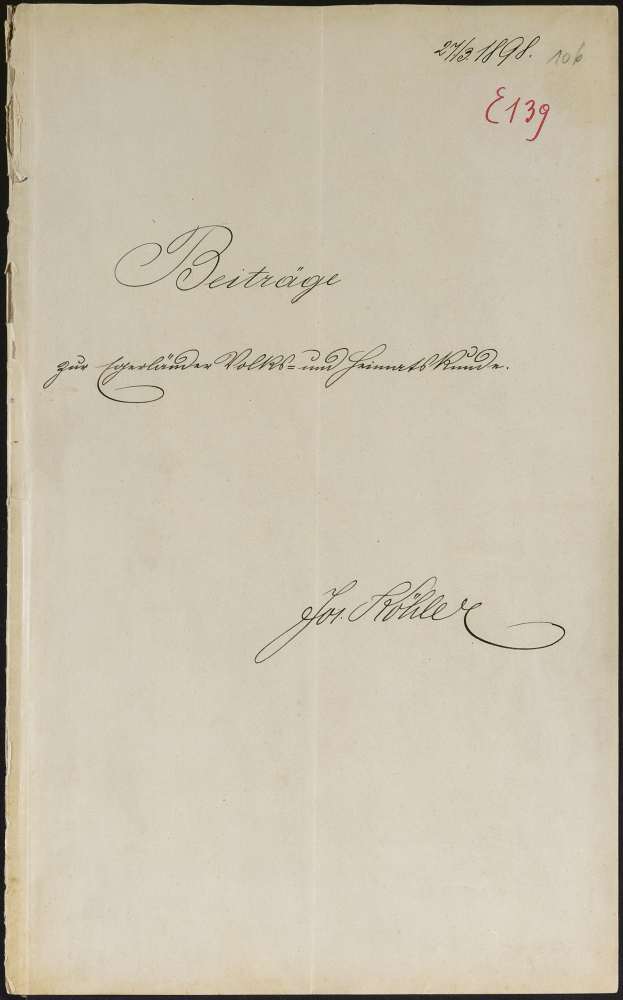 27/3. 1898. 10b
E139
Beiträge
zur Egerländer Volks- und Heimatskunde.
Jos. Köhler